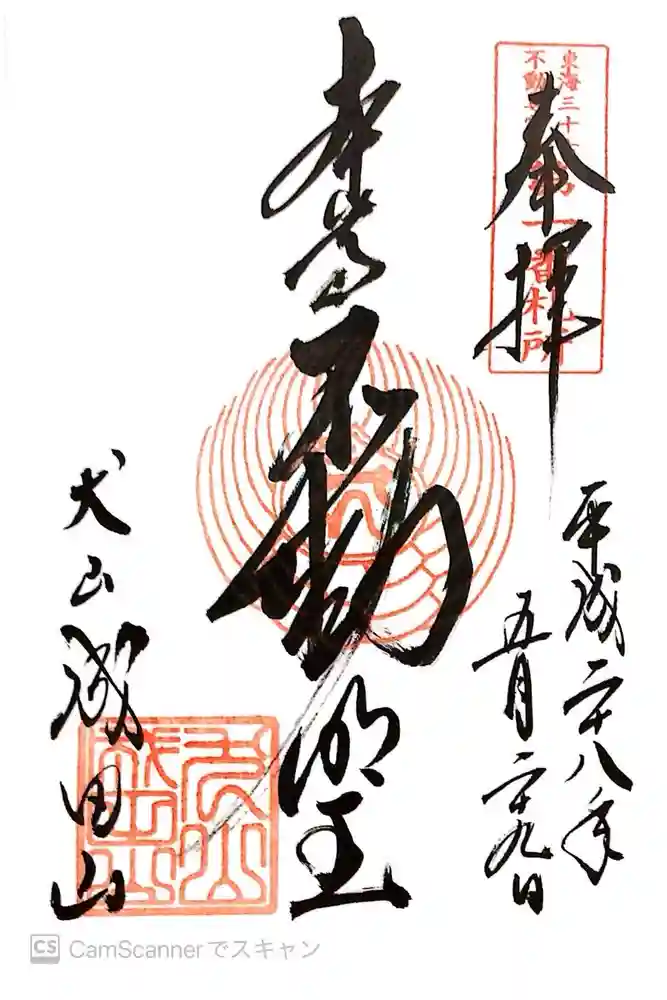 奉拝
東海三十
不動
一番札所
平成二十八年
五月二十九日
本尊不動明王
犬山成田山
CS CamScannerでスキャン